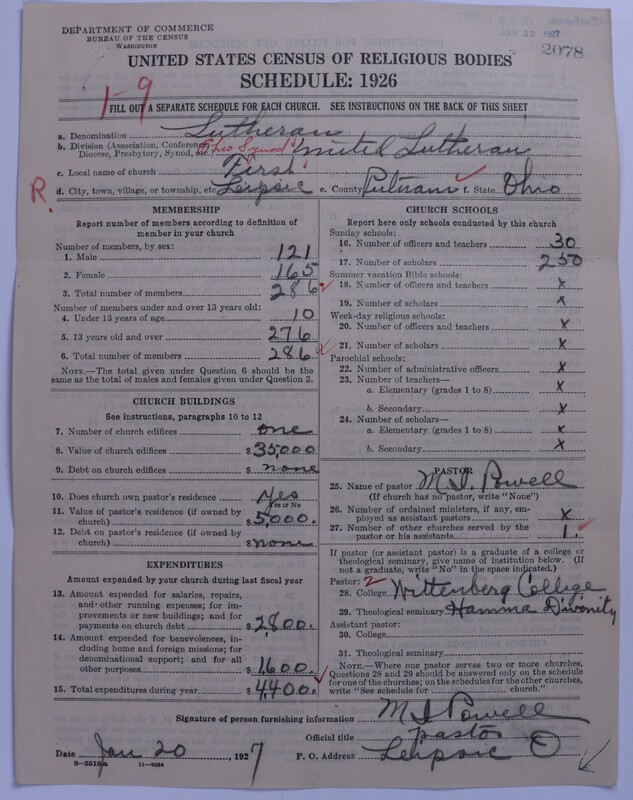 DEPARTMENT OF COMMERCE
BUREAU OF THE CENSUS
WASHINGTON
JAN 22 1927
2078
UNITED STATES CENSUS OF RELIGIOUS BODIES
SCHEDULE: 1926
1-9
FILL OUT A SEPARATE SCHEDULE FOR EACH CHURCH. SEE INSTRUCTIONS ON THE BACK OF THIS SHEET
a. Denomination Lutheran
b. Division (Association, Conference, Diocese, Presbytery, Synod, etc.) Ohio Synod United Lutheran
c. Local name of church First
R.
d. City, town, village, or township, etc. Leipsic e. County Putnam f. State Ohio
MEMBERSHIP
Report number of members according to definition of
member in your church
Number of members, by sex:
1. Male 121
2. Female 165
3. Total number of members 286
Number of members under and over 13 years old:
4. Under 13 years of age 10
5. 13 years old and over 276
6. Total number of members 286
NOTE.—The total given under Question 6 should be
the same as the total of males and females given under Question 3.
CHURCH BUILDINGS
See instructions, paragraphs 10 to 12
7. Number of church edifices one
8. Value of church edifices $ 35,000
9. Debt on church edifices $ none
10. Does church own pastor's residence Yes
Yes or No
11. Value of pastor's residence (if owned by
church) $ 5,000.
12. Debt on pastor's residence (if owned by
church) $ none
EXPENDITURES
Amount expended by your church during last fiscal year
13. Amount expended for salaries, repairs,
and other running expenses; for im-
provements or new buildings; and for
payments on church debt $ 2800.
14. Amount expended for benevolences, in-
cluding home and foreign missions; for
denominational support; and for all
other purposes $ 1600.
15. Total expenditures during year $ 4400.
CHURCH SCHOOLS
Report here only schools conducted by this church
Sunday schools:
16. Number of officers and teachers 30
17. Number of scholars 250
Summer vacation Bible schools:
18. Number of officers and teachers x
19. Number of scholars x
Week-day religious schools:
20. Number of officers and teachers x
21. Number of scholars x
Parochial schools:
22. Number of administrative officers x
23. Number of teachers—
a. Elementary (grades 1 to 8) x
b. Secondary x
24. Number of scholars—
a. Elementary (grades 1 to 8) x
b. Secondary x
PASTOR
25. Name of pastor M. I. Powell
(If church has no pastor, write "None")
26. Number of ordained ministers, if any, em-
ployed as assistant pastors x
27. Number of other churches served by the
pastor or his assistants 1.
If pastor (or assistant pastor) is a graduate of a college or
theological seminary, give name of institution below. (If
not a graduate, write "No" in the space indicated.)
Pastor: 2
28. College Wittenberg College
29. Theological seminary Hamma Divinity
Assistant pastor:
30. College
31. Theological seminary
NOTE.—Where one pastor serves two or more churches,
Questions 28 and 29 should be answered only on the schedule
for one of the churches; on the schedules for the other churches,
write "See schedule for church."
Signature of person furnishing information M I Powell
Official title pastor
Date Jan 20, 1927 P. O. Address Leipsic O
8-5518a 11-9084